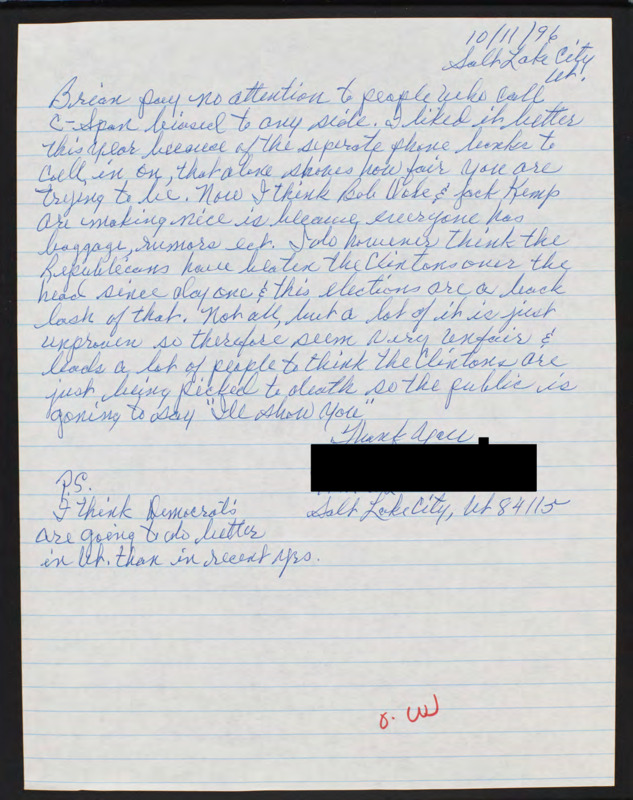 10/11/96
Salt Lake City
Ut.
Brian pay no attention to people who call
C-Span biased to any side. I liked it better
this year because of the seperate phone number to
call in on, that alone shows how fair you are
trying to be. Now I think Bob Dole & Jack Kemp
are making nice is because everyone has
baggage, rumors ect. I do however think the
Republicans have beaten the Clintons over the
head since day one & this elections are a back
lash of that. Not all, but a lot of it is just
unproven so therefore seem very unfair &
leads a lot of people to think the Clintons are
just being picked to death so the public is
goning to say "I'll show you"
Thank you.
Salt Lake City, Ut 84115
P.S.
I think Democrats
are going to do better
in Ut. than in recent yrs.